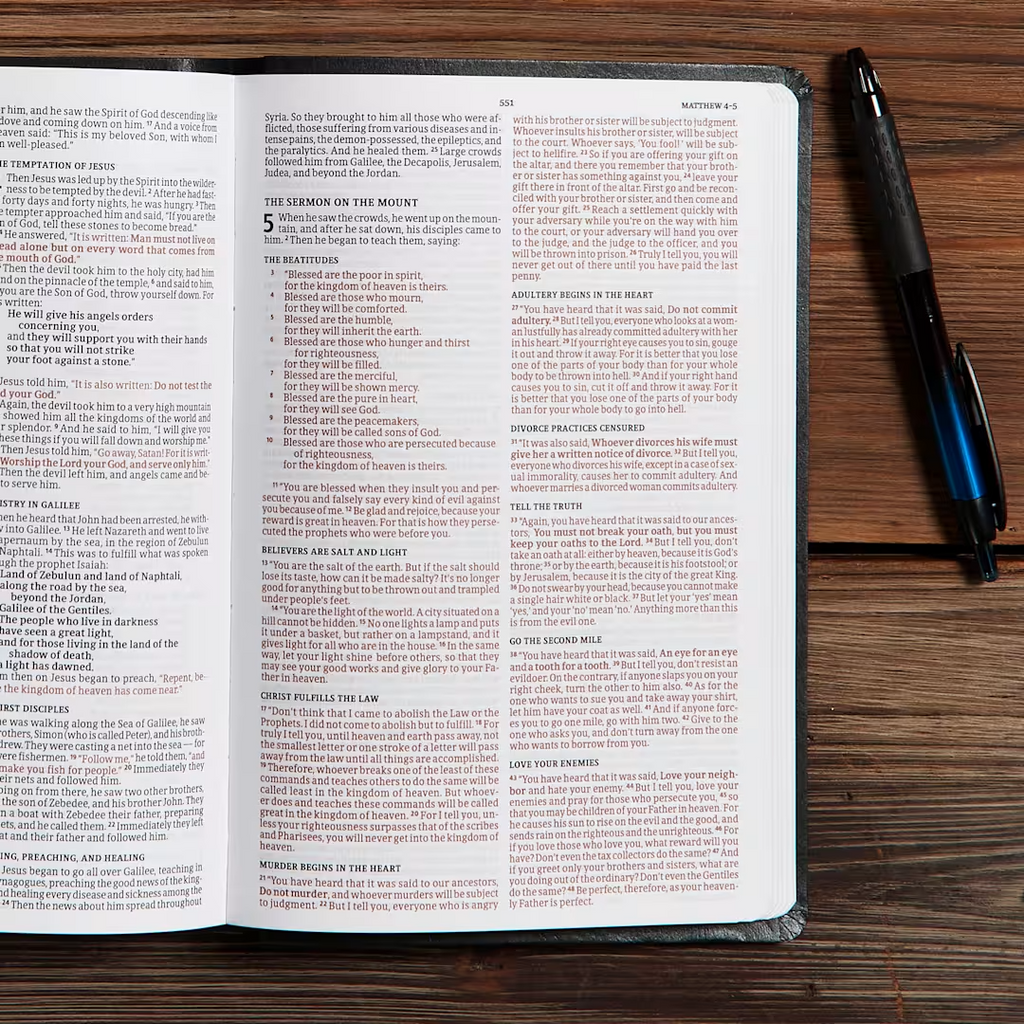 r him, and he saw the Spirit of God descending like
dove and coming down on him. 17 And a voice from
eaven said: "This is my beloved Son, with whom I
m well-pleased."
HE TEMPTATION OF JESUS
Then Jesus was led up by the Spirit into the wilder-
ness to be tempted by the devil. 2 After he had fast-
forty days and forty nights, he was hungry. 3 Then
e tempter approached him and said, "If you are the
n of God, tell these stones to become bread."
4 He answered, "It is written: Man must not live on
ead alone but on every word that comes from
e mouth of God."
Then the devil took him to the holy city, had him
nd on the pinnacle of the temple, 6 and said to him,
you are the Son of God, throw yourself down. For
s written:
He will give his angels orders
concerning you,
and they will support you with their hands
so that you will not strike
your foot against a stone."
Jesus told him, "It is also written: Do not test the
d your God."
Again, the devil took him to a very high mountain
showed him all the kingdoms of the world and
r splendor. 9 And he said to him, "I will give you
hese things if you will fall down and worship me."
Then Jesus told him, "Go away, Satan! For it is writ-
Worship the Lord your God, and serve only him."
Then the devil left him, and angels came and be-
to serve him.
ISTRY IN GALILEE
hen he heard that John had been arrested, he with-
v into Galilee. 13 He left Nazareth and went to live
apernaum by the sea, in the region of Zebulun
Naphtali. 14 This was to fulfill what was spoken
ugh the prophet Isaiah:
Land of Zebulun and land of Naphtali,
along the road by the sea,
beyond the Jordan,
Galilee of the Gentiles.
The people who live in darkness
have seen a great light,
and for those living in the land of the
shadow of death,
a light has dawned.
m then on Jesus began to preach, "Repent, be-
e the kingdom of heaven has come near."
IRST DISCIPLES
he was walking along the Sea of Galilee, he saw
rothers, Simon (who is called Peter), and his broth-
drew. They were casting a net into the sea — for
were fishermen. 19 "Follow me," he told them, "and
make you fish for people." 20 Immediately they
eir nets and followed him.
oing on from there, he saw two other brothers,
the son of Zebedee, and his brother John. They
n a boat with Zebedee their father, preparing
ets, and he called them. 22 Immediately they left
at and their father and followed him.
ING, PREACHING, AND HEALING
Jesus began to go all over Galilee, teaching in
ynagogues, preaching the good news of the king-
nd healing every disease and sickness among the
24 Then the news about him spread throughout
551
MATTHEW 4–5
Syria. So they brought to him all those who were af-
flicted, those suffering from various diseases and in-
tense pains, the demon-possessed, the epileptics, and
the paralytics. And he healed them. 25 Large crowds
followed him from Galilee, the Decapolis, Jerusalem,
Judea, and beyond the Jordan.
THE SERMON ON THE MOUNT
5 When he saw the crowds, he went up on the moun-
tain, and after he sat down, his disciples came to
him. 2 Then he began to teach them, saying:
THE BEATITUDES
3 "Blessed are the poor in spirit,
for the kingdom of heaven is theirs.
4 Blessed are those who mourn,
for they will be comforted.
5 Blessed are the humble,
for they will inherit the earth.
6 Blessed are those who hunger and thirst
for righteousness,
for they will be filled.
7 Blessed are the merciful,
for they will be shown mercy.
8 Blessed are the pure in heart,
for they will see God.
9 Blessed are the peacemakers,
for they will be called sons of God.
10 Blessed are those who are persecuted because
of righteousness,
for the kingdom of heaven is theirs.
11 "You are blessed when they insult you and per-
secute you and falsely say every kind of evil against
you because of me. 12 Be glad and rejoice, because your
reward is great in heaven. For that is how they perse-
cuted the prophets who were before you.
BELIEVERS ARE SALT AND LIGHT
13 "You are the salt of the earth. But if the salt should
lose its taste, how can it be made salty? It's no longer
good for anything but to be thrown out and trampled
under people's feet.
14 "You are the light of the world. A city situated on a
hill cannot be hidden. 15 No one lights a lamp and puts
it under a basket, but rather on a lampstand, and it
gives light for all who are in the house. 16 In the same
way, let your light shine before others, so that they
may see your good works and give glory to your Fa-
ther in heaven.
CHRIST FULFILLS THE LAW
17 "Don't think that I came to abolish the Law or the
Prophets. I did not come to abolish but to fulfill. 18 For
truly I tell you, until heaven and earth pass away, not
the smallest letter or one stroke of a letter will pass
away from the law until all things are accomplished.
19 Therefore, whoever breaks one of the least of these
commands and teaches others to do the same will be
called least in the kingdom of heaven. But whoev-
er does and teaches these commands will be called
great in the kingdom of heaven. 20 For I tell you, un-
less your righteousness surpasses that of the scribes
and Pharisees, you will never get into the kingdom of
heaven.
MURDER BEGINS IN THE HEART
21 "You have heard that it was said to our ancestors,
Do not murder, and whoever murders will be subject
to judgment. 22 But I tell you, everyone who is angry
with his brother or sister will be subject to judgment.
Whoever insults his brother or sister, will be subject
to the court. Whoever says, 'You fool!' will be sub-
ject to hellfire. 23 So if you are offering your gift on
the altar, and there you remember that your broth-
er or sister has something against you, 24 leave your
gift there in front of the altar. First go and be recon-
ciled with your brother or sister, and then come and
offer your gift. 25 Reach a settlement quickly with
your adversary while you're on the way with him
to the court, or your adversary will hand you over
to the judge, and the judge to the officer, and you
will be thrown into prison. 26 Truly I tell you, you will
never get out of there until you have paid the last
penny.
ADULTERY BEGINS IN THE HEART
27 "You have heard that it was said, Do not commit
adultery. 28 But I tell you, everyone who looks at a wom-
an lustfully has already committed adultery with her
in his heart. 29 If your right eye causes you to sin, gouge
it out and throw it away. For it is better that you lose
one of the parts of your body than for your whole
body to be thrown into hell. 30 And if your right hand
causes you to sin, cut it off and throw it away. For it
is better that you lose one of the parts of your body
than for your whole body to go into hell.
DIVORCE PRACTICES CENSURED
31 "It was also said, Whoever divorces his wife must
give her a written notice of divorce. 32 But I tell you,
everyone who divorces his wife, except in a case of sex-
ual immorality, causes her to commit adultery. And
whoever marries a divorced woman commits adultery.
TELL THE TRUTH
33 "Again, you have heard that it was said to our ances-
tors, You must not break your oath, but you must
keep your oaths to the Lord. 34 But I tell you, don't
take an oath at all: either by heaven, because it is God's
throne; 35 or by the earth, because it is his footstool; or
by Jerusalem, because it is the city of the great King.
36 Do not swear by your head, because you cannot make
a single hair white or black. 37 But let your 'yes' mean
'yes,' and your 'no' mean 'no.' Anything more than this
is from the evil one.
GO THE SECOND MILE
38 "You have heard that it was said, An eye for an eye
and a tooth for a tooth. 39 But I tell you, don't resist an
evildoer. On the contrary, if anyone slaps you on your
right cheek, turn the other to him also. 40 As for the
one who wants to sue you and take away your shirt,
let him have your coat as well. 41 And if anyone forc-
es you to go one mile, go with him two. 42 Give to the
one who asks you, and don't turn away from the one
who wants to borrow from you.
LOVE YOUR ENEMIES
43 "You have heard that it was said, Love your neigh-
bor and hate your enemy. 44 But I tell you, love your
enemies and pray for those who persecute you, 45 so
that you may be children of your Father in heaven. For
he causes his sun to rise on the evil and the good, and
sends rain on the righteous and the unrighteous. 46 For
if you love those who love you, what reward will you
have? Don't even the tax collectors do the same? 47 And
if you greet only your brothers and sisters, what are
you doing out of the ordinary? Don't even the Gentiles
do the same? 48 Be perfect, therefore, as your heaven-
ly Father is perfect.